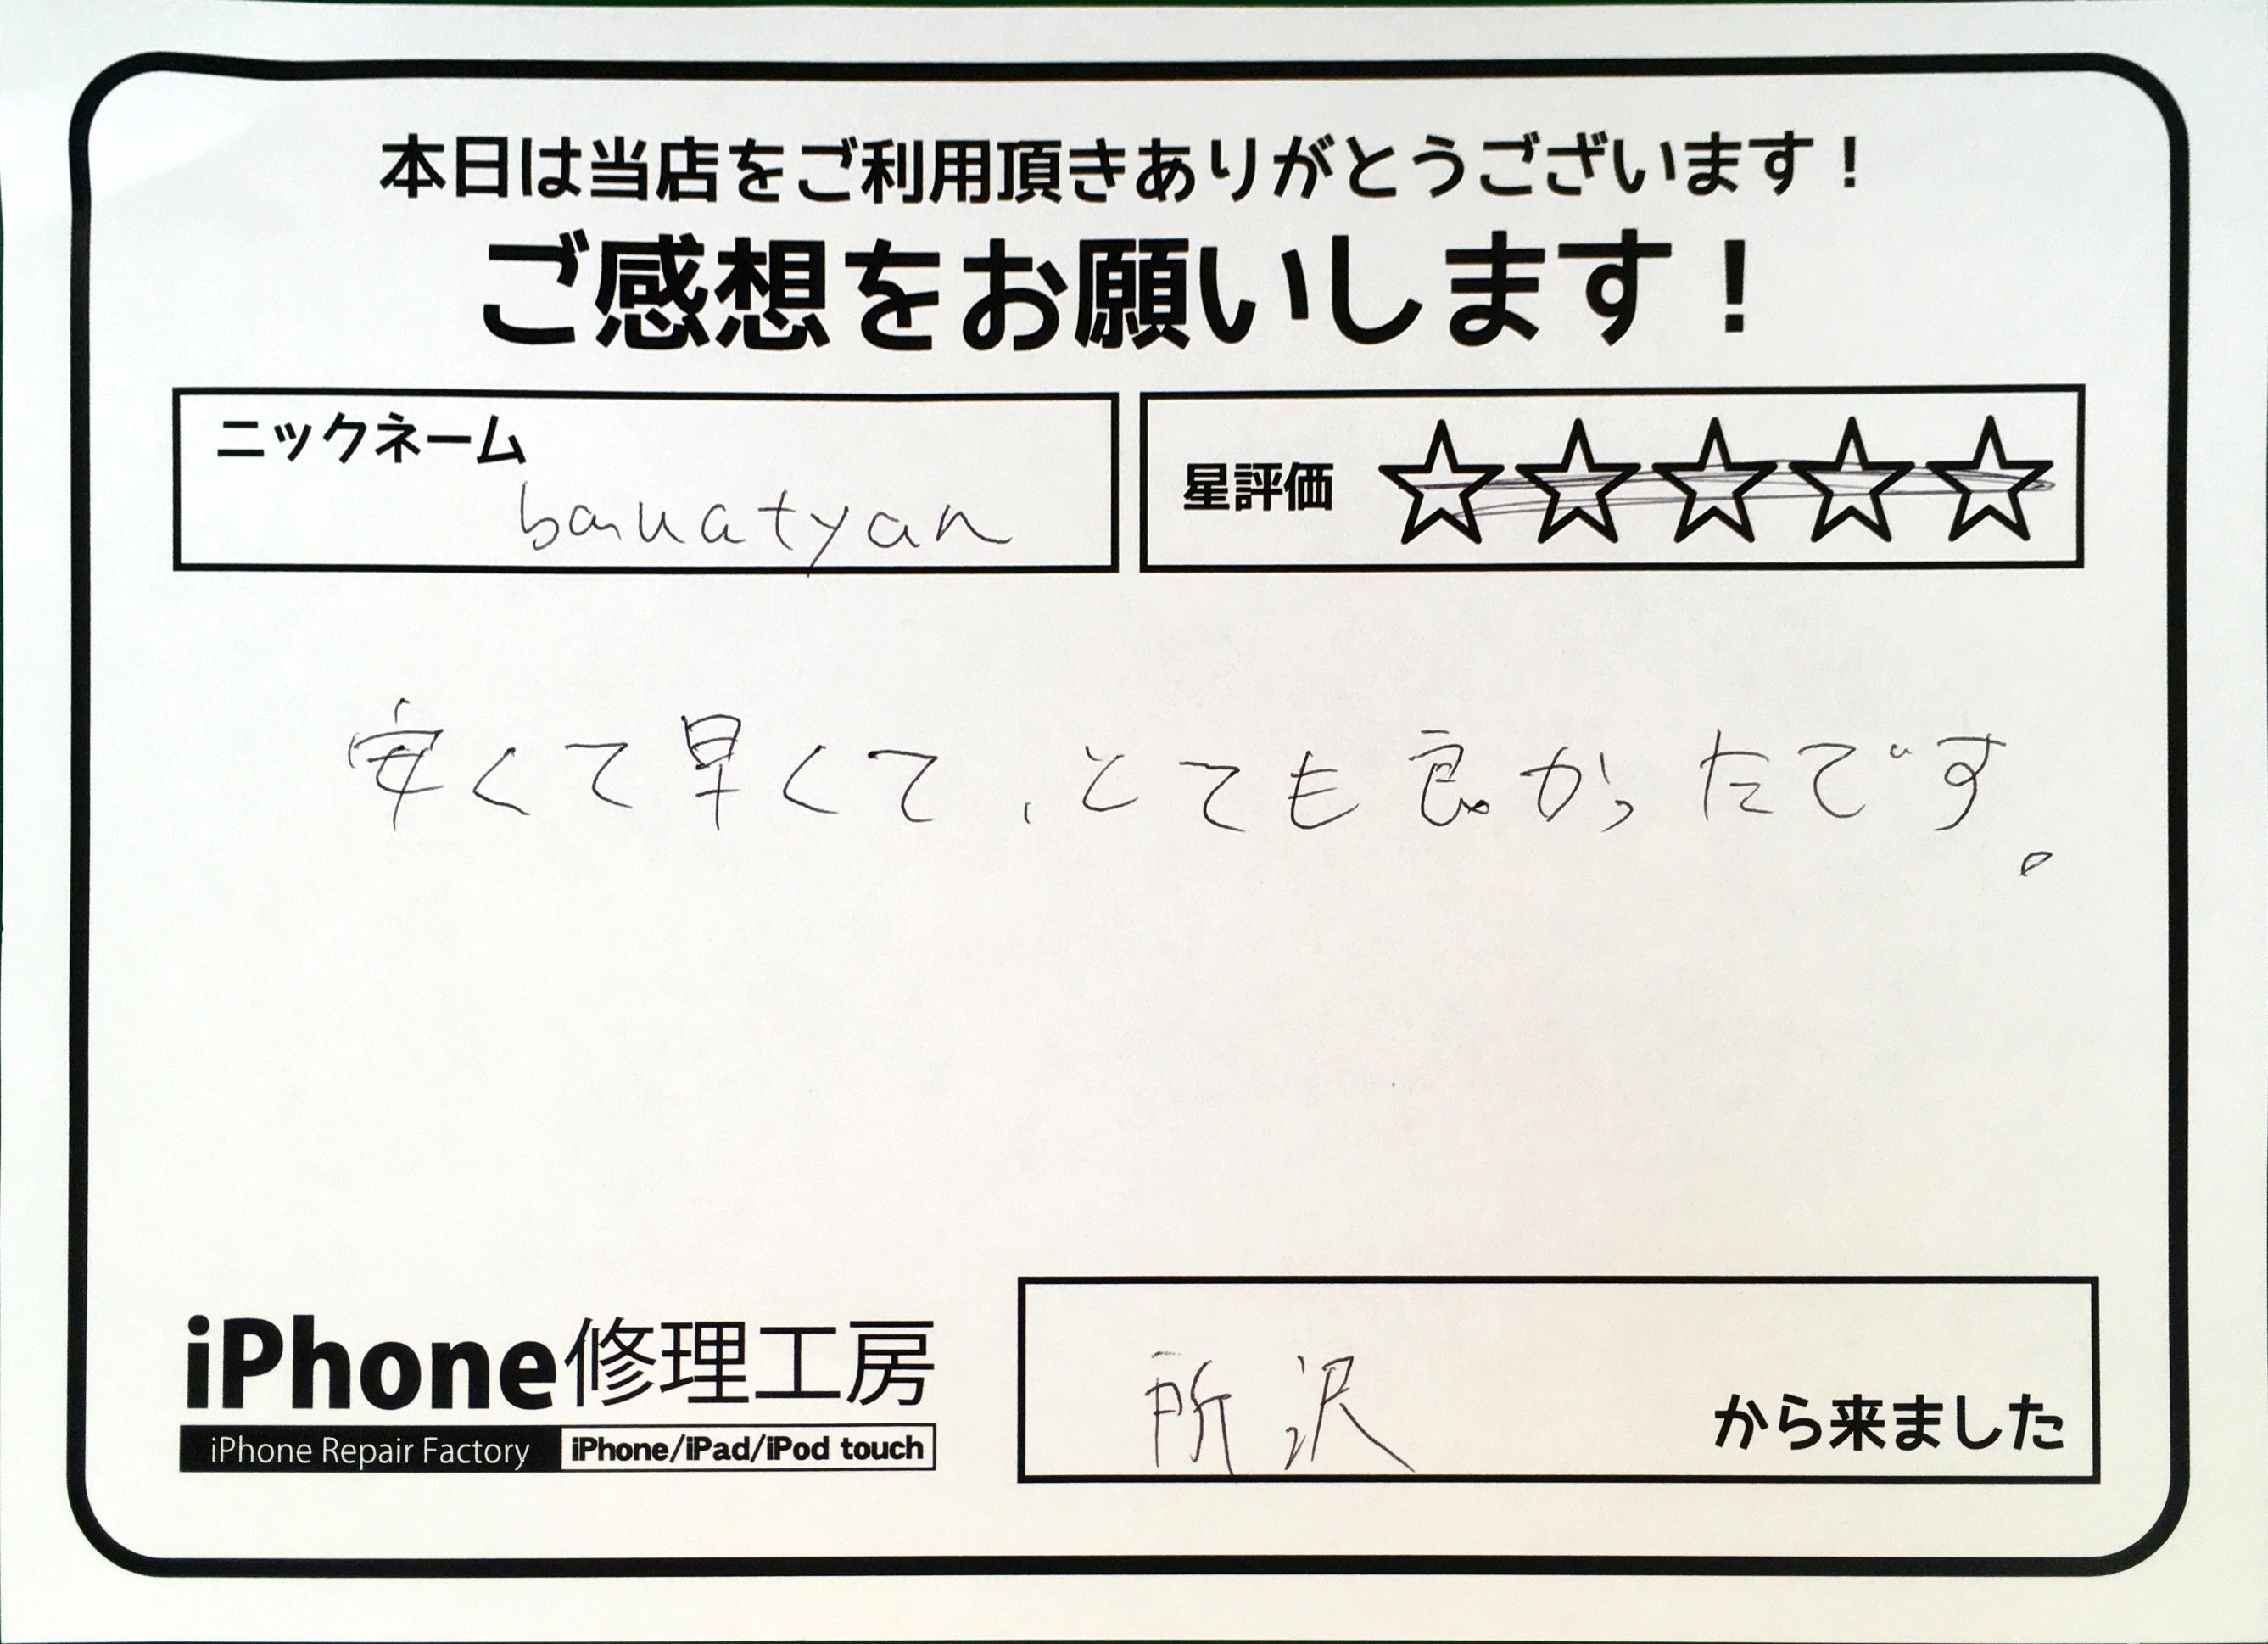 本日は当店をご利用頂きありがとうございます！
ご感想をお願いします！
ニックネーム
banatyan
星評価 ☆☆☆☆☆
安くて早くて、とても良かったです。
iPhone修理工房
iPhone Repair Factory iPhone/iPad/iPod touch
所沢 から来ました